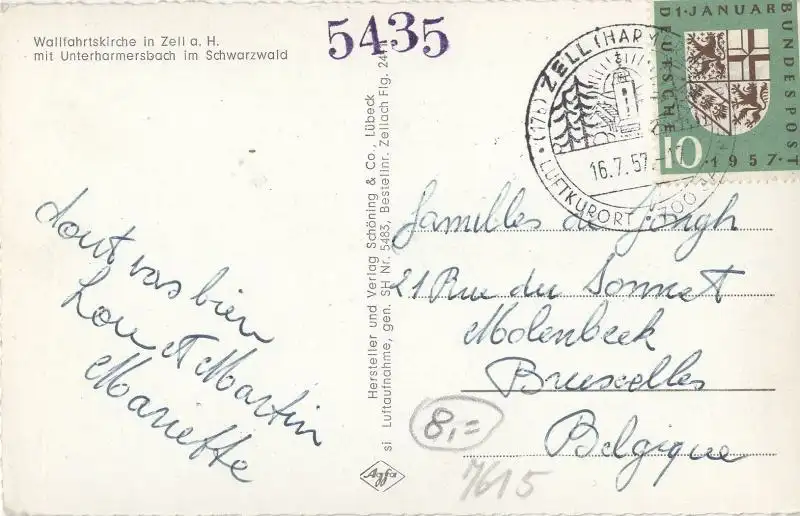 Wallfahrtskirche in Zell a. H.
mit Unterharmersbach im Schwarzwald
5435
Hersteller und Verlag Schöning & Co., Lübeck
si Luftaufnahme, gen. SH Nr. 5483, Bestellnr. Zellach Flg. 24
Agfa
(17b) ZELL (HAR
16.7.57
LUFTKURORT
700
1·JANUAR
BUNDESPOST
DEUTSCHE
10
·1957·
tout vas bien
Lou et Martin
Mariette
familles de Jongh
21 Rue du Sonnet
Molenbeek
Bruxelles
Belgique
8,=
7615